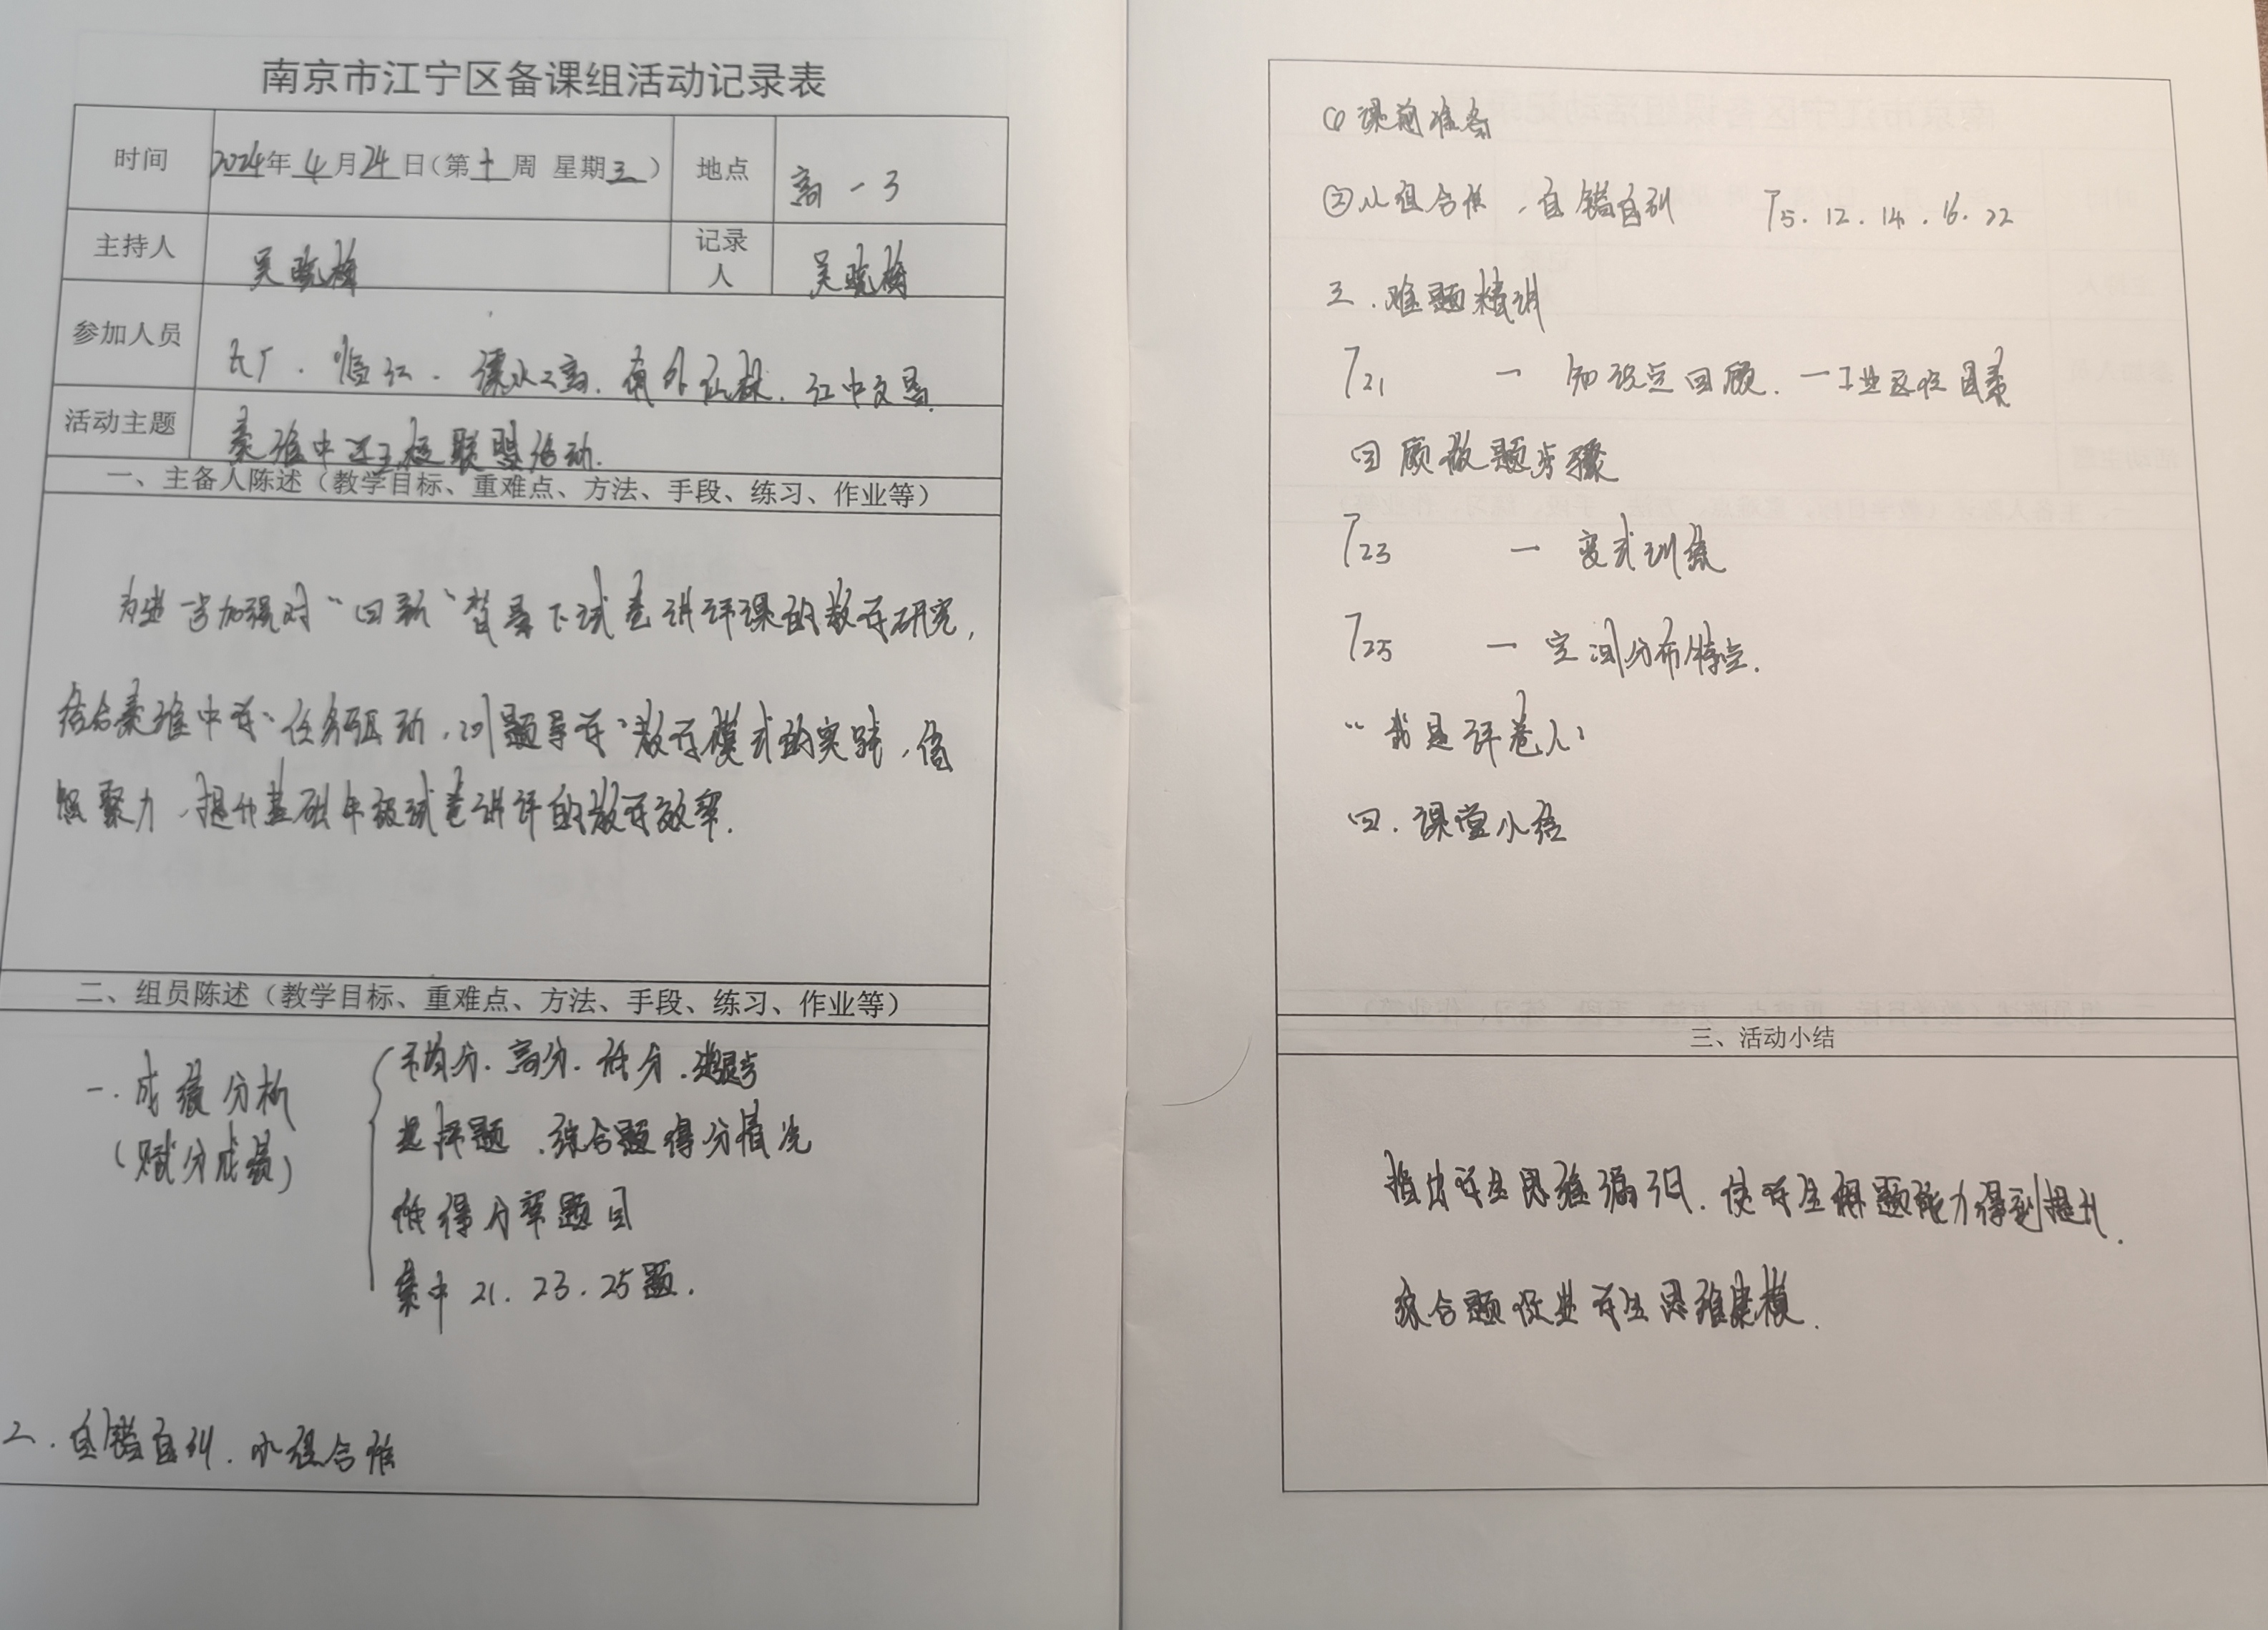 南京市江宁区备课组活动记录表
时间 2024年4月24日（第十周 星期三） 地点 高一3
主持人 吴晓梅 记录人 吴晓梅
参加人员 大厂．临江．溧水二高．南外仙林．江中文昌．
活动主题 秦淮中学五校联盟活动．
一、主备人陈述（教学目标、重难点、方法、手段、练习、作业等）
为进一步加强对“四新”背景下试卷讲评课的教学研究，
结合秦淮中学“任务驱动，问题导学”教学模式的实践，
聚力，提升基础年级试卷讲评的教学效率．
二、组员陈述（教学目标、重难点、方法、手段、练习、作业等）
一．成绩分析
（赋分成绩）
平均分．高分．低分．进退步
选择题．综合题得分情况
低得分率题目
集中21．23．25题．
二．自错自纠．小组合作
① 课前准备
②小组合作，自错自纠 T5．12．14．16．22
三．难题精讲
T21 — 知识点回顾．—工业区位因素
回顾做题步骤
T23 — 变式训练
T25 — 空间分布特点．
“我是评卷人”
四．课堂小结
三、活动小结
指出学生思维漏洞．使学生解题能力得到提升．
综合题 学生思维建模．